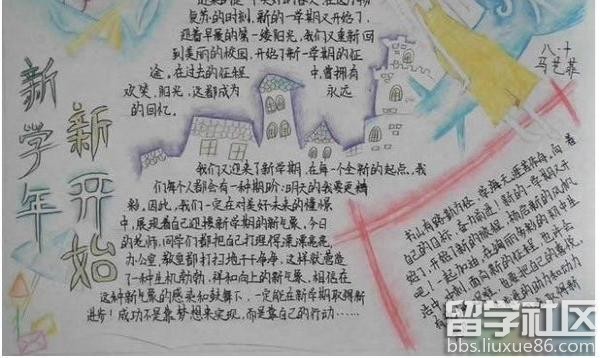 新学年
新开始
复苏的时刻，新的一学期又开始了，
踏着早晨的第一缕阳光，我们又重新回
到美丽的校园，开始了新一学期的征
途，在过去的征程中曾拥有
欢笑，阳光，这都成为永远
的回忆。
八、十
马艺菲
我们又迎来了新学期，在每一个全新的起点，我
们每个人都会有一种期盼：明天的我要更精
彩。因此，我们一定在对美好未来的憧憬
中，展现着自己迎接新学期的新气象，今日
的老师，同学们都把自己打理得漂漂亮亮，
办公室，教室都打扫地干干净净，这样就营造
了一种生机勃勃，祥和向上的新气象，相信在
这种新气象的感染和鼓舞下，一定能在新学期取得新
进步！成功不是靠梦想来实现，而是靠自己的行动……
书山有路勤为径，学海无涯苦作舟，向着
自己的目标，奋力前进！新的一学期又开
始了，开启了新的旅程，扬启新的风帆
吧！一起加油，在绚丽
留学社区
bbs.liuxue86.com